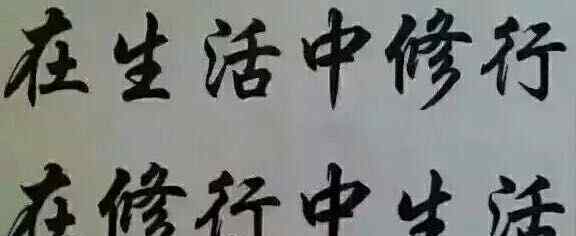 在生活中修行
在修行中生活